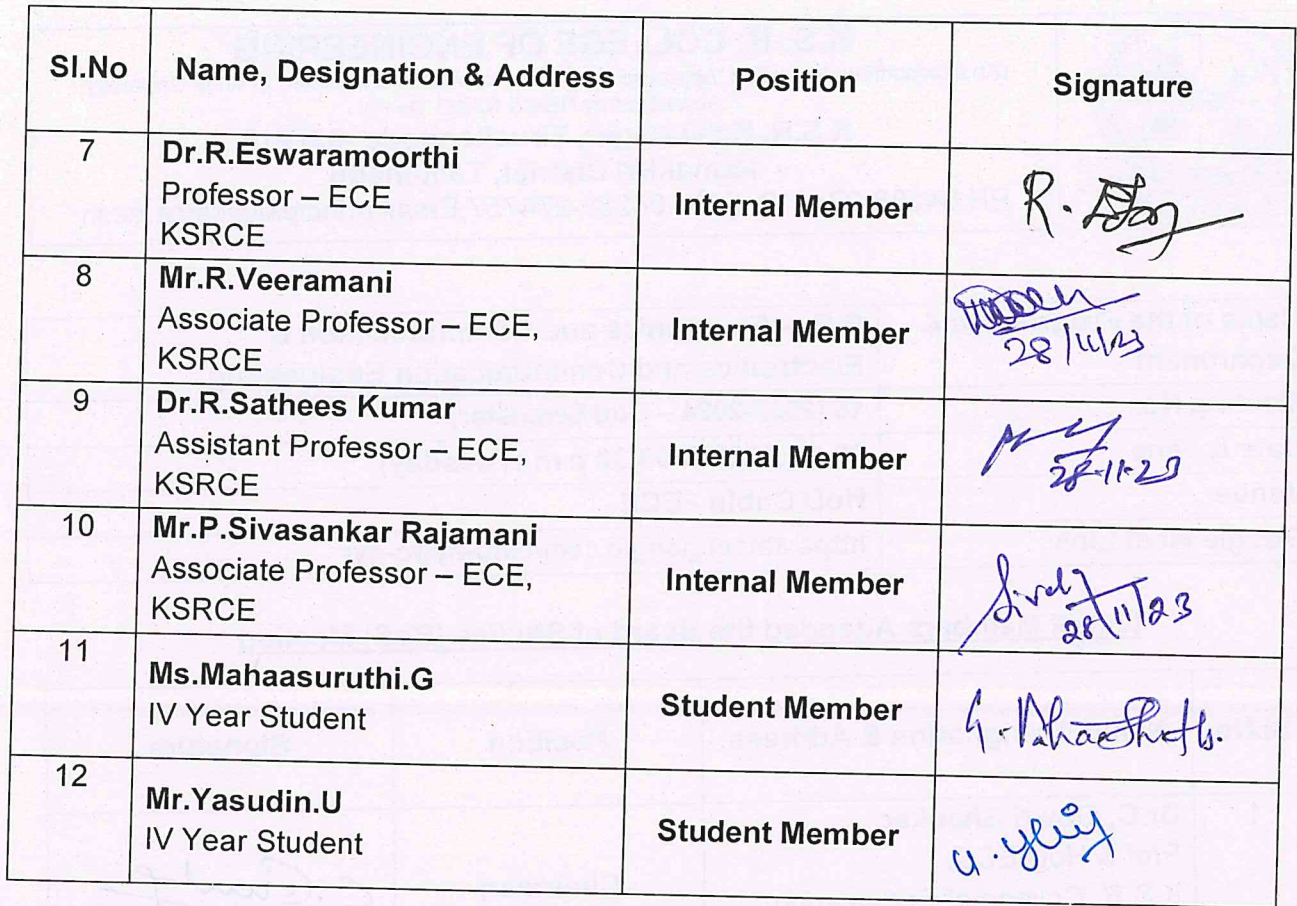 Sl.No Name, Designation & Address Position Signature
7 Dr.R.Eswaramoorthi
Professor – ECE
KSRCE
Internal Member
R.
8 Mr.R.Veeramani
Associate Professor – ECE,
KSRCE
Internal Member
28/11/23
9 Dr.R.Sathees Kumar
Assistant Professor – ECE,
KSRCE
Internal Member
28-11-23
10 Mr.P.Sivasankar Rajamani
Associate Professor – ECE,
KSRCE
Internal Member
28/11/23
11
Ms.Mahaasuruthi.G
IV Year Student
Student Member
12
Mr.Yasudin.U
IV Year Student
Student Member